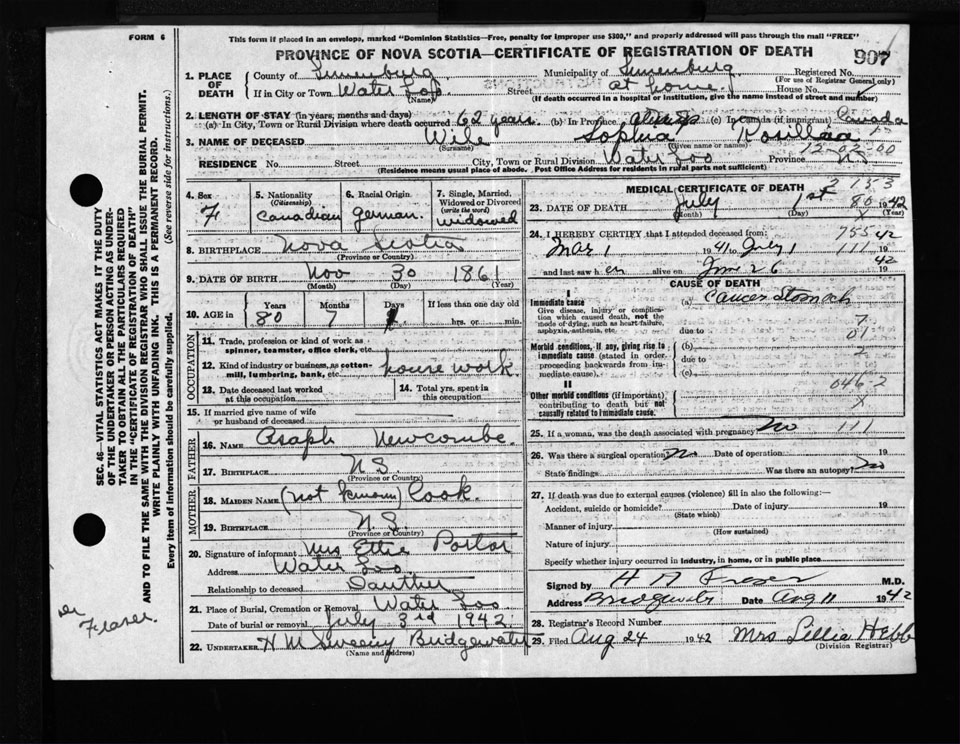 FORM 6
This form if placed in an envelope, marked "Dominion Statistics—Free, penalty for improper use $300," and properly addressed will pass through the mail "FREE"
PROVINCE OF NOVA SCOTIA—CERTIFICATE OF REGISTRATION OF DEATH
907
1. PLACE OF DEATH
County of Lunenburg Municipality of Lunenburg Registered No.
(For use of Registrar General only)
If in City or Town Water Loo Street at home House No.
(Name) (If death occurred in a hospital or institution, give the name instead of street and number)
2. LENGTH OF STAY (in years, months and days)
(a) In City, Town or Rural Division where death occurred 62 years. (b) In Province always (c) In Canada (if immigrant) Canada
3. NAME OF DECEASED Wile Sophia Rosillaa
(Surname) (Given name or names)
12-02-00
RESIDENCE No. Street City, Town or Rural Division Water Loo Province NS
(Residence means usual place of abode. Post Office Address for residents in rural parts not sufficient)
4. Sex F
5. Nationality (Citizenship) Canadian
6. Racial Origin German.
7. Single, Married, Widowed or Divorced (write the word) Widowed
8. BIRTHPLACE Nova Scotia
(Province or Country)
9. DATE OF BIRTH Nov 30 1861
(Month) (Day) (Year)
10. AGE in Years Months Days If less than one day old
80 7 1 hrs. or min.
OCCUPATION
11. Trade, profession or kind of work as spinner, teamster, office clerk, etc.
12. Kind of industry or business, as cotton-mill, lumbering, bank, etc. house work
13. Date deceased last worked at this occupation
14. Total yrs. spent in this occupation
15. If married give name of wife or husband of deceased
FATHER
16. NAME Asaph Newcombe.
17. BIRTHPLACE N.S.
(Province or Country)
MOTHER
18. MAIDEN NAME (not known) Cook.
19. BIRTHPLACE N.S.
(Province or Country)
20. Signature of informant Mrs Ettie Portor
Address Water Loo
Relationship to deceased Dauther
21. Place of Burial, Cremation or Removal Water Loo
Date of burial or removal July 3rd 1942
22. UNDERTAKER H M Sweeny Bridgewater
(Name and Address)
MEDICAL CERTIFICATE OF DEATH
2 153
23. DATE OF DEATH July 1st 1942
(Month) (Day) (Year)
80
X
24. I HEREBY CERTIFY that I attended deceased from:
755
Mar 1 1941 to July 1 1942
111
and last saw her alive on June 26 1942
CAUSE OF DEATH
I
Immediate cause (a) Cancer Stomach
Give disease, injury or complication which caused death, not the mode of dying, such as heart failure, asphyxia, asthenia, etc.
due to
Morbid conditions, if any, giving rise to immediate cause (stated in order proceeding backwards from immediate cause).
(b)
due to
(c)
II
Other morbid conditions (if important) contributing to death but not causally related to immediate cause.
046-2
X
25. If a woman, was the death associated with pregnancy? No 111
26. Was there a surgical operation No Date of operation 19
State findings Was there an autopsy? No
27. If death was due to external causes (violence) fill in also the following:—
Accident, suicide or homicide? Date of injury 19
(State which)
Manner of injury
(How sustained)
Nature of injury
Specify whether injury occurred in industry, in home, or in public place
Signed by H A Fraser M.D.
Address Bridgewater Date Aug 11 1942
28. Registrar's Record Number
29. Filed Aug 24 1942 Mrs Lillie Hebb
(Division Registrar)
SEC. 46—VITAL STATISTICS ACT MAKES IT THE DUTY
OF THE UNDERTAKER OR PERSON ACTING AS UNDER-
TAKER TO OBTAIN ALL THE PARTICULARS REQUIRED
IN THE "CERTIFICATE OF REGISTRATION OF DEATH"
AND TO FILE THE SAME WITH THE DIVISION REGISTRAR WHO SHALL ISSUE THE BURIAL PERMIT.
WRITE PLAINLY WITH UNFADING INK. THIS IS A PERMANENT RECORD.
Every item of information should be carefully supplied. (See reverse side for instructions.)
Dr Fraser.